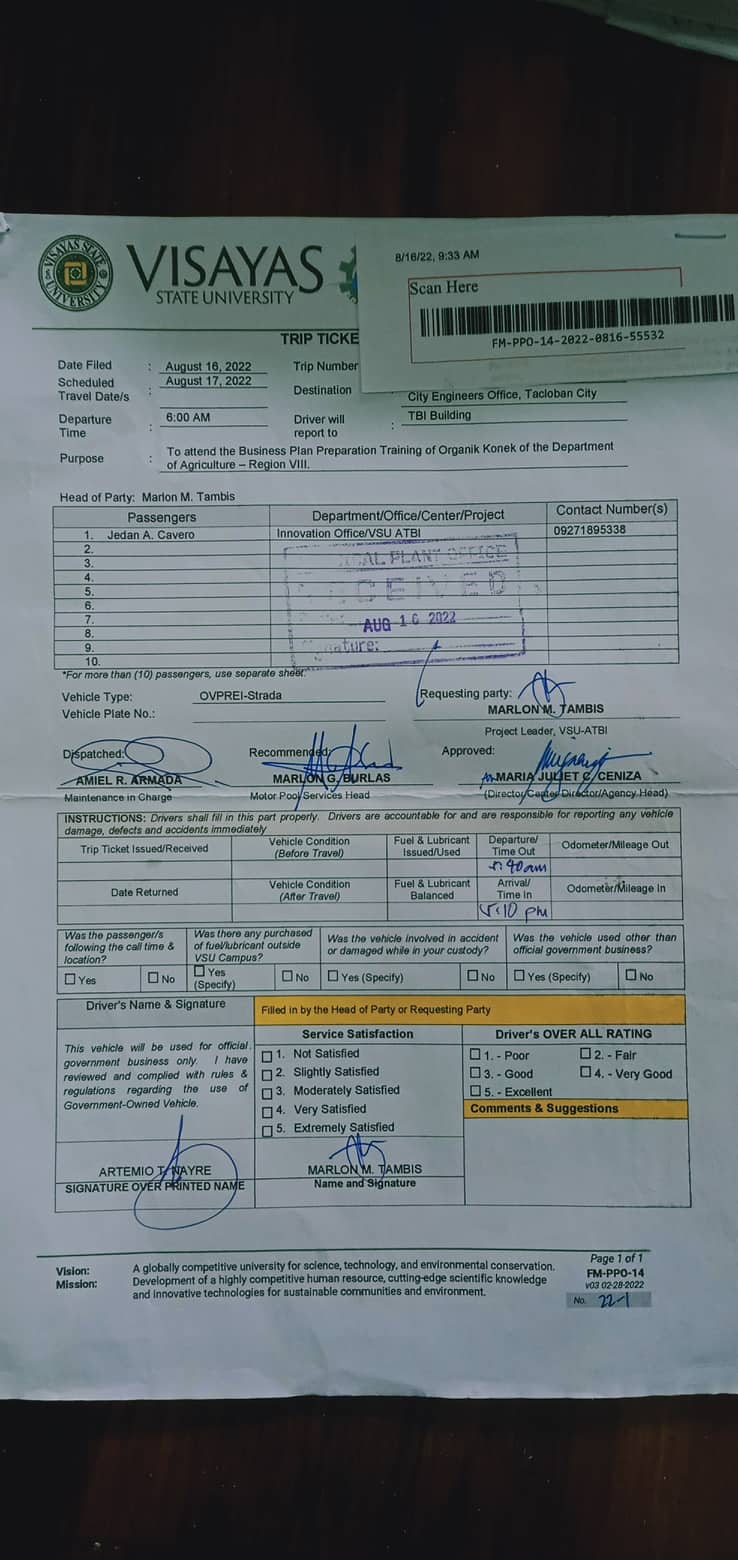 VISAYAS STATE UNIVERSITY
VISAYAS
STATE UNIVERSITY
8/16/22, 9:33 AM
Scan Here
FM-PPO-14-2022-0816-55532
TRIP TICKE
Date Filed : August 16, 2022 Trip Number
Scheduled Travel Date/s : August 17, 2022 Destination City Engineers Office, Tacloban City
Departure Time : 6:00 AM Driver will report to : TBI Building
Purpose : To attend the Business Plan Preparation Training of Organik Konek of the Department
of Agriculture – Region VIII.
Head of Party: Marlon M. Tambis
Passengers Department/Office/Center/Project Contact Number(s)
1. Jedan A. Cavero Innovation Office/VSU ATBI 09271895338
2.
3.
4.
5.
6.
7.
8.
9.
10.
PLANT OFFICE
AUG 16 2022
*For more than (10) passengers, use separate sheet.
Vehicle Type: OVPREI-Strada Requesting party:
Vehicle Plate No.: MARLON M. TAMBIS
Project Leader, VSU-ATBI
Dispatched: Recommended: Approved:
AMIEL R. ARMADA MARLON G. BURLAS MARIA JULIET C. CENIZA
Maintenance in Charge Motor Pool Services Head (Director/Center Director/Agency Head)
INSTRUCTIONS: Drivers shall fill in this part properly. Drivers are accountable for and are responsible for reporting any vehicle
damage, defects and accidents immediately
Trip Ticket Issued/Received Vehicle Condition (Before Travel) Fuel & Lubricant Issued/Used Departure/ Time Out Odometer/Mileage Out
5:40am
Date Returned Vehicle Condition (After Travel) Fuel & Lubricant Balanced Arrival/ Time In Odometer/Mileage In
5:10 pm
Was the passenger/s following the call time & location? Was there any purchased of fuel/lubricant outside VSU Campus? Was the vehicle involved in accident or damaged while in your custody? Was the vehicle used other than official government business?
Yes No Yes (Specify) No Yes (Specify) No Yes (Specify) No
Driver's Name & Signature Filled in by the Head of Party or Requesting Party
Service Satisfaction Driver's OVER ALL RATING
This vehicle will be used for official
government business only. I have
reviewed and complied with rules &
regulations regarding the use of
Government-Owned Vehicle.
1. Not Satisfied
2. Slightly Satisfied
3. Moderately Satisfied
4. Very Satisfied
5. Extremely Satisfied
1. - Poor 2. - Fair
3. - Good 4. - Very Good
5. - Excellent
Comments & Suggestions
ARTEMIO T. NAYRE MARLON M. TAMBIS
SIGNATURE OVER PRINTED NAME Name and Signature
Vision: A globally competitive university for science, technology, and environmental conservation.
Mission: Development of a highly competitive human resource, cutting-edge scientific knowledge
and innovative technologies for sustainable communities and environment.
Page 1 of 1
FM-PPO-14
v03 02-28-2022
No. 22-1